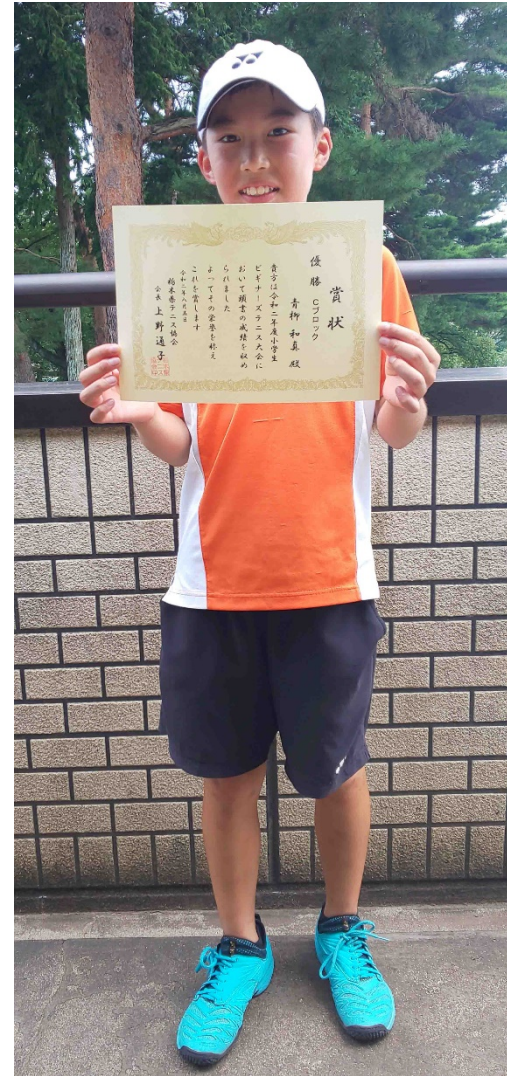 賞状
優勝 Cブロック
青柳 和真 殿
貴方は令和二年度小学生
ビギナーズテニス大会に
おいて頭書の成績を収め
られました
よってその栄誉を称え
これを賞します
令和二年八月五日
栃木県テニス協会
会長 上野通子